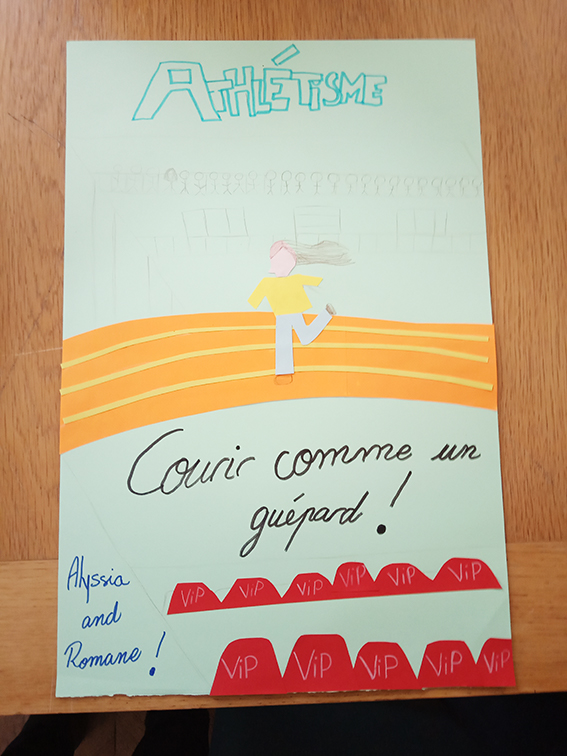 ATHLÉTISME
Courir comme un
guépard !
Alyssia
and
Romane !
ViP ViP ViP ViP ViP ViP
ViP ViP ViP ViP ViP